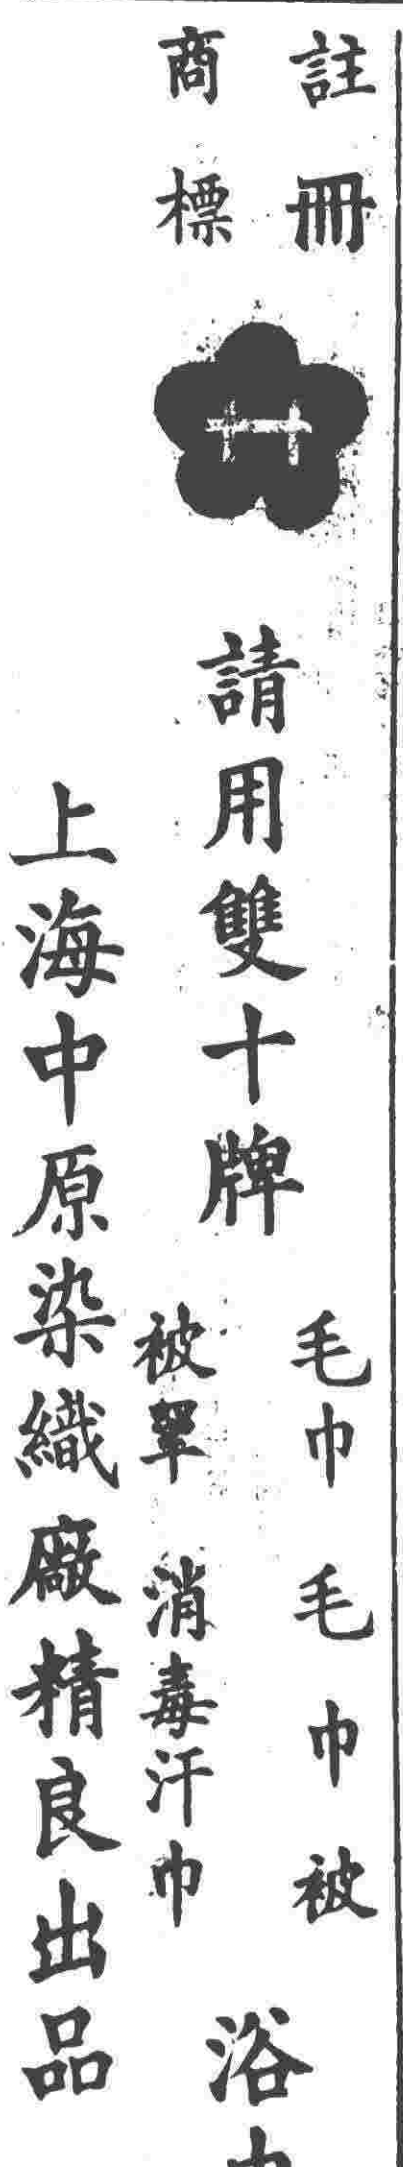 註冊
商標
請用雙十牌
毛巾 毛巾被
被罩 消毒汗巾
浴
上海中原染織廠精良出品